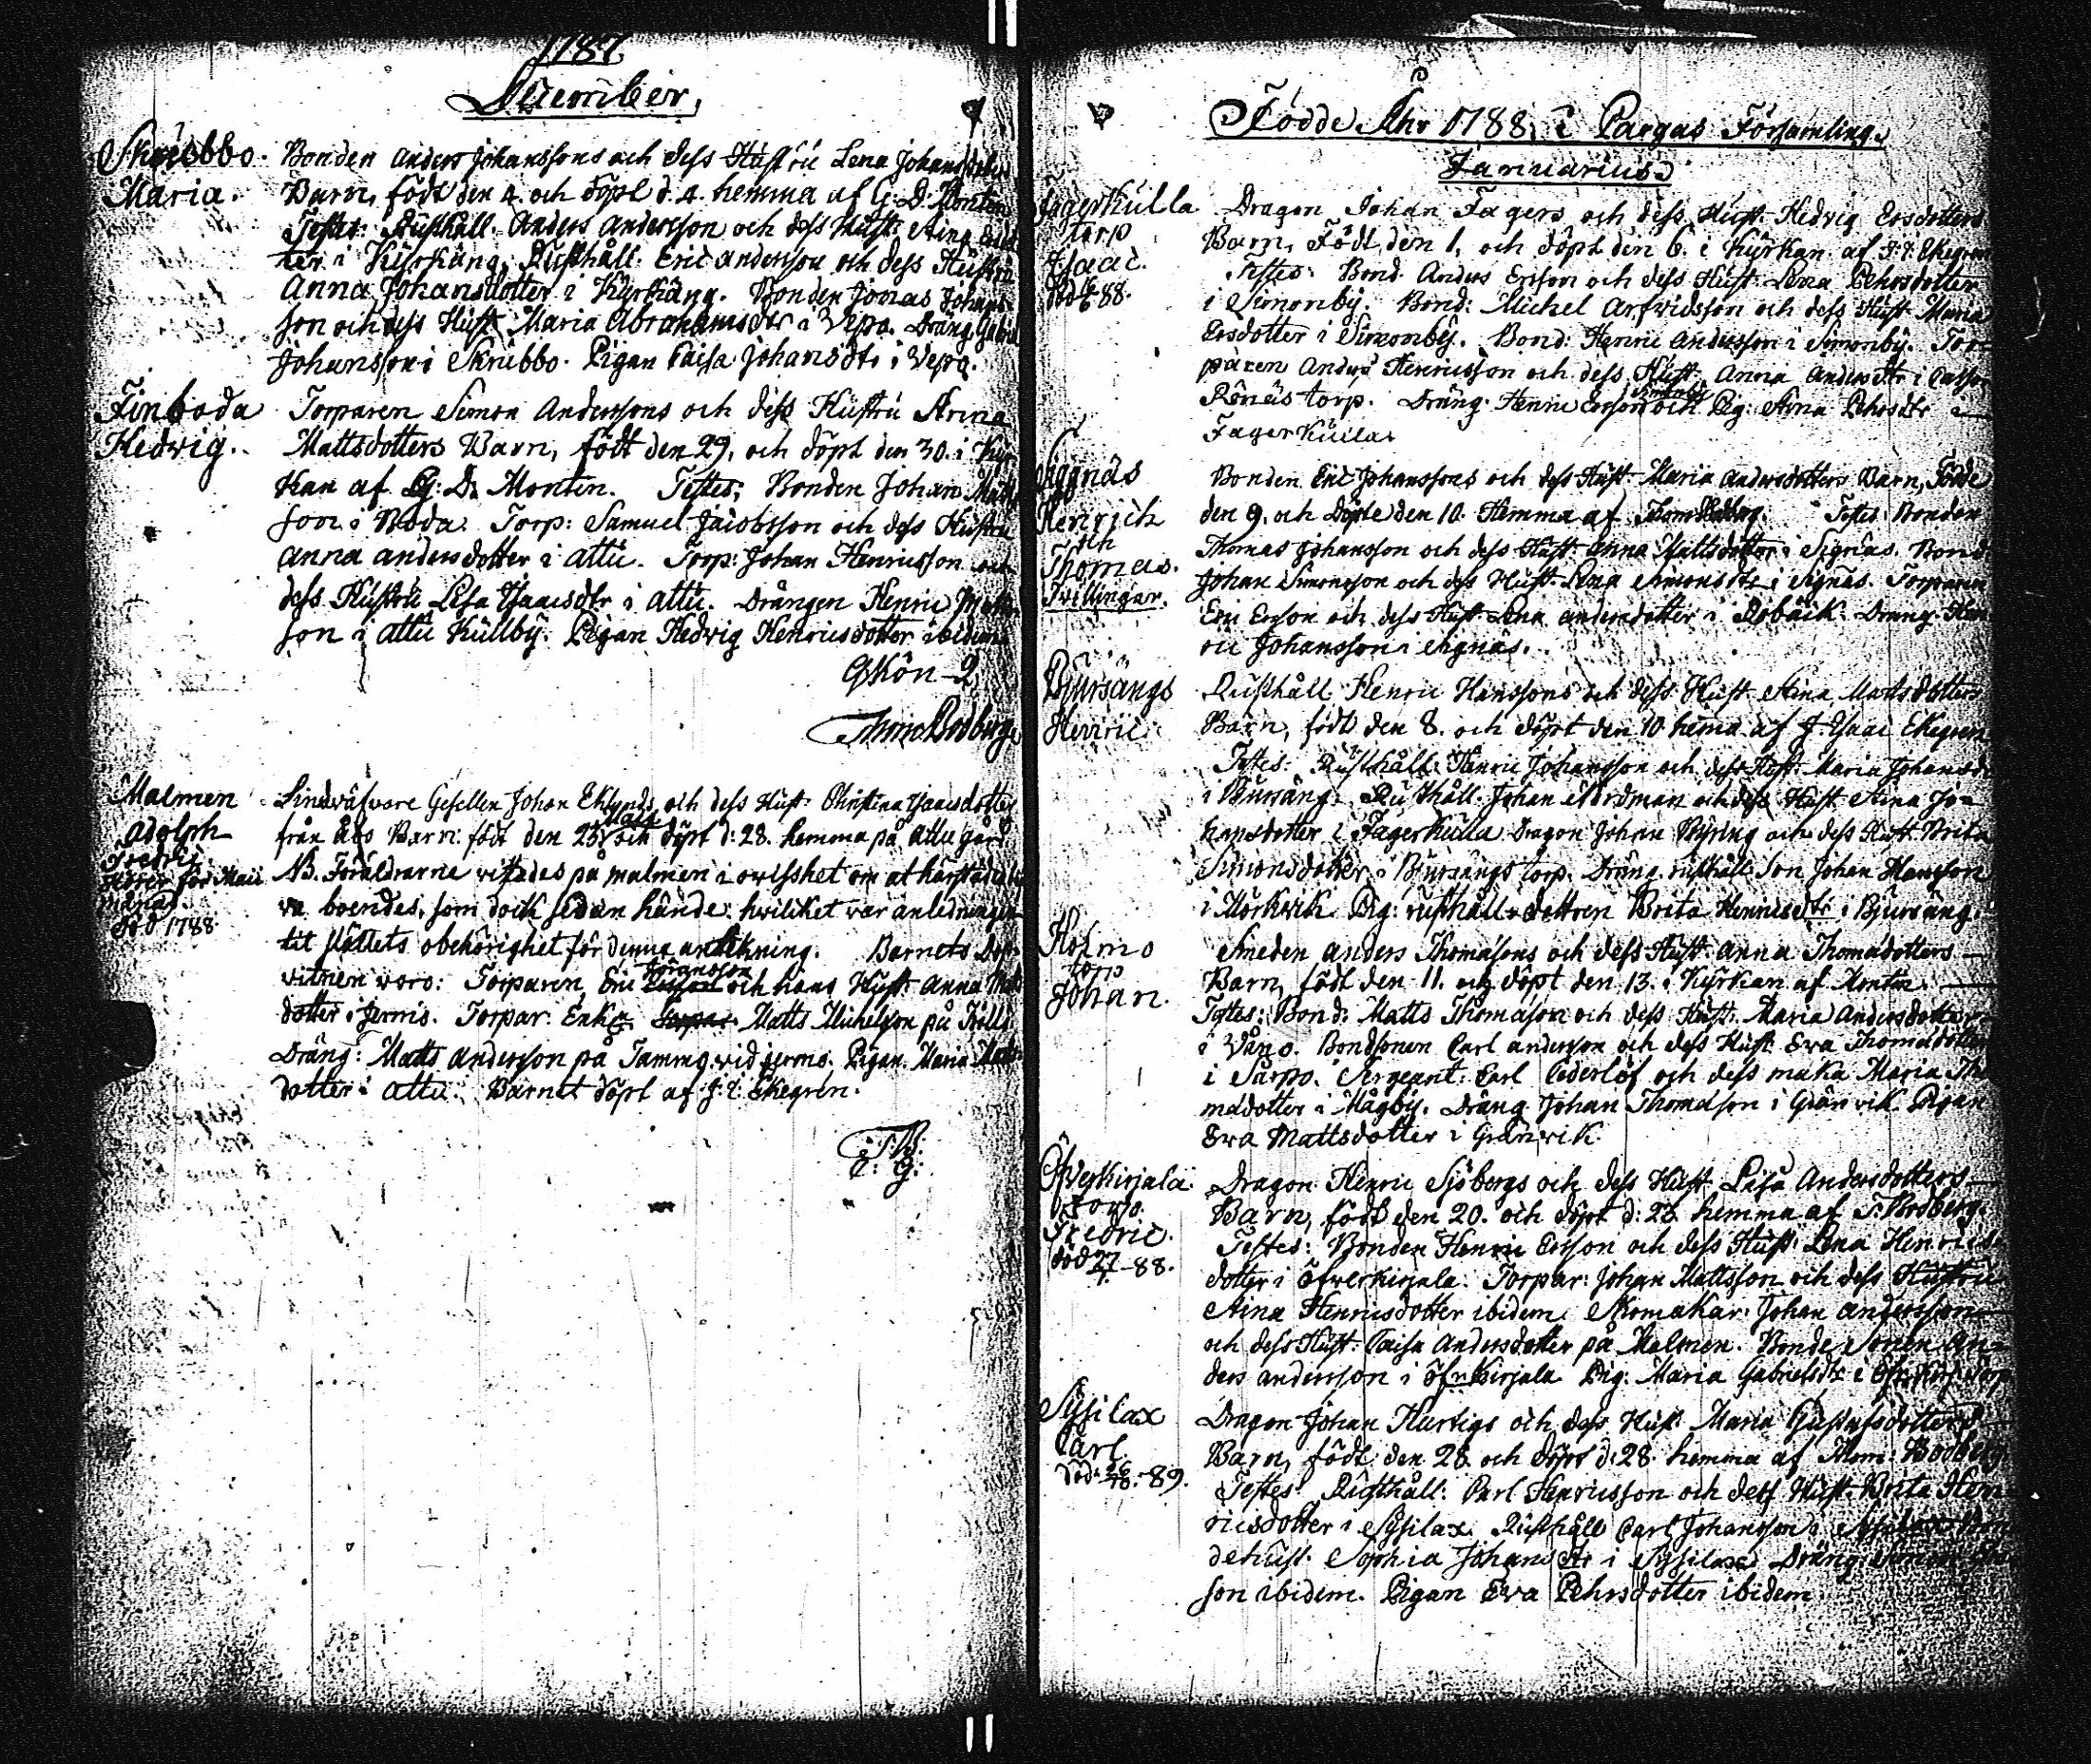 1787.
December.
Skräbbo. Bonden Anders Johanssons och dess Hustru Lena Johansdotters
Maria. Barn, födt den 4. och döpt d. 4. hemma af G. D. Monten
Testes: Rusthåll. Anders Andersson och dess Hust: Stina
ter i Kyrkäng, Rusthåll. Eric Andersson och dess Hustru
Anna Johansdotter i Kyrkäng. Bonden Jonas Johans
son och dess Hust. Maria Abrahamsdtr i Vepo. Dräng Gabriel
Johansson i Skräbbo. Pigan Caisa Johansdtr i Vepo.
Finboda Torparen Simon Anderssons och dess Hustru Anna
Hedvig. Mattsdotters Barn, födt den 29. och döpt den 30. i Kyr
kan af G: D. Monten. Testes: Bonden Johan Matts
son i Boda. Torp: Samuel Jacobsson och dess Hustru
Anna Andersdotter i Attu. Torp: Johan Henricsson och
dess Hustru Lisa Isaacsdtr i Attu. Drängen Henric Matts
son i Attu Kullby. Pigan Hedvig Henricsdotter ibidem
Qkön 2
Thom Bodberg
Malmen Lindväfvare Gesellen Johan Eklunds och dess Hust: Christina Isaacsdotters
Adolph från Åbo Barn: födt den 25 Maii och döpt d: 28. hemma på Attu gård
Fredric. NB. Föräldrarne vistades på malmen i ovisshet om at härstädes bli
hörer för Maii månad. va boendes, som dock sedan hände: hvilket var anledningen
död 1788. til ställets obehörighet för denna anteckning. Barnets Dop
vitnen voro: Torparen Eric Johansson och hans Hust: Anna Matts
dotter i Jermis. Torpar: Enka Matts Michelsson på
Dräng: Matts Andersson på Tammo vid Jermo. Pigan Maria Matts
dotter i Attu. Barnet döpt af J. I. Ekegren.
T. B.
C: G:
Födde Åhr 1788, i Pargas Församling.
Januarius
Fagerkulla Dragon Johan Fagers och dess Hust. Hedvig Ersdotters
torp Barn, Födt den 1. och döpt den 6. i Kyrkan af J. I. Ekegren
Isaac. Testes: Bond. Anders Ersson och dess Hust: Lena Pehrsdotter
död 88. i Simonby. Bond: Michel Arfvidsson och dess Hust: Maria
Ersdotter i Simonby. Bond: Henric Andersson i Simonby. Tor
paren Anders Henricsson och dess Hust: Anna Andersdtr i
Rönäs torp. Dräng: Henric Ersson och Pig: Stina Pehrsdtr i
Fagerkulla.
Siggnäs Bonden Eric Johanssons och dess Hust: Maria Andersdotters Barn, Födde
Henrich den 9. och Döpte den 10. Hemma af Thom Bodberg. Testes Bonden
och Thomas Johansson och dess Hust: Anna Mattsdotter i Signäs. Bond.
Thomas. Johan Simonsson och dess Hust: Lena Simonsdtr i Signäs. Torparen
Tvillingar. Eric Ersson och dess Hust: Lena Andersdotter i Robäck. Dräng: Hen
ric Johansson i Signäs.
Bjursängs Rusthåll Henric Hanssons och dess Hust. Stina Mattsdotters
Henric. Barn, födt den 8. och döpt den 10 hema af J. Isaac Ekegren.
Testes: Rusthåll. Henric Johansson och dess Hust: Maria Johansdr
i Bursäng. Rusthåll. Johan Nordman och dess Hust Stina Jo-
hansdotter i Fagerkulla Dragon Johan Byring och dess Hust: Brita
Simonsdotter i Bursängs torp. Dräng rusthåll: Son Johan Hansson
i Mörkvik Pig: rusthålls dottren Brita Henricsdtr i Bjursäng.
Holmo Smeden Anders Thomassons och dess Hust: Anna Thomadotters
torp Barn, födt den 11. och döpt den 13. i Kyrkan af Monten.
Johan. Testes: Bond. Matts Thomasson och dess Hust: Maria Andersdotter
i Våno. Bondsonen Carl Andersson och dess Hust: Eva Thomadotter
i Sarpo. Sergeant: Carl Cederlöf och dess maka Maria Tho
madotter i Mågby. Dräng Johan Thomasson i Granvik. Pigan
Eva Mattsdotter i Granvik.
Öfverkirjala Dragon Henric Sjöbergs och dess Hust. Lisa Andersdotters
torp. Barn, födt den 20. och döpt d: 23. hemma af T. Bodberg.
Fredric. Testes: Bonden Henric Ersson och dess Hust: Lena Henrics
död 27/1 -88. dotter i Öfverkirjala. Torpar: Johan Mattsson och dess Hustru
Stina Henricsdotter ibidem. Skomakar: Johan Andersson
och dess Hust: Caisa Andersdotter på Malmen. Bonde Sonen An-
ders Andersson i Öfv. Kirjala Pig. Maria Gabrielsdtr i Öfv. Kirj: torp
Sysilax Dragon Johan Hurtigs och dess Hust Maria Gustafsdotters
Carl. Barn, födt den 28 och döpt d: 28. hemma af Thom: Bodberg
död: -89. Testes: Rusthåll: Carl Henricsson och dess Hust. Brita Hen
ricsdotter i Sysilax. Rusthåll Carl Johansson i Sysilax. Bon
dehust: Sophia Johansdtr i Sysilax. Dräng:
son ibidem. Pigan Eva Pehrsdotter ibidem.